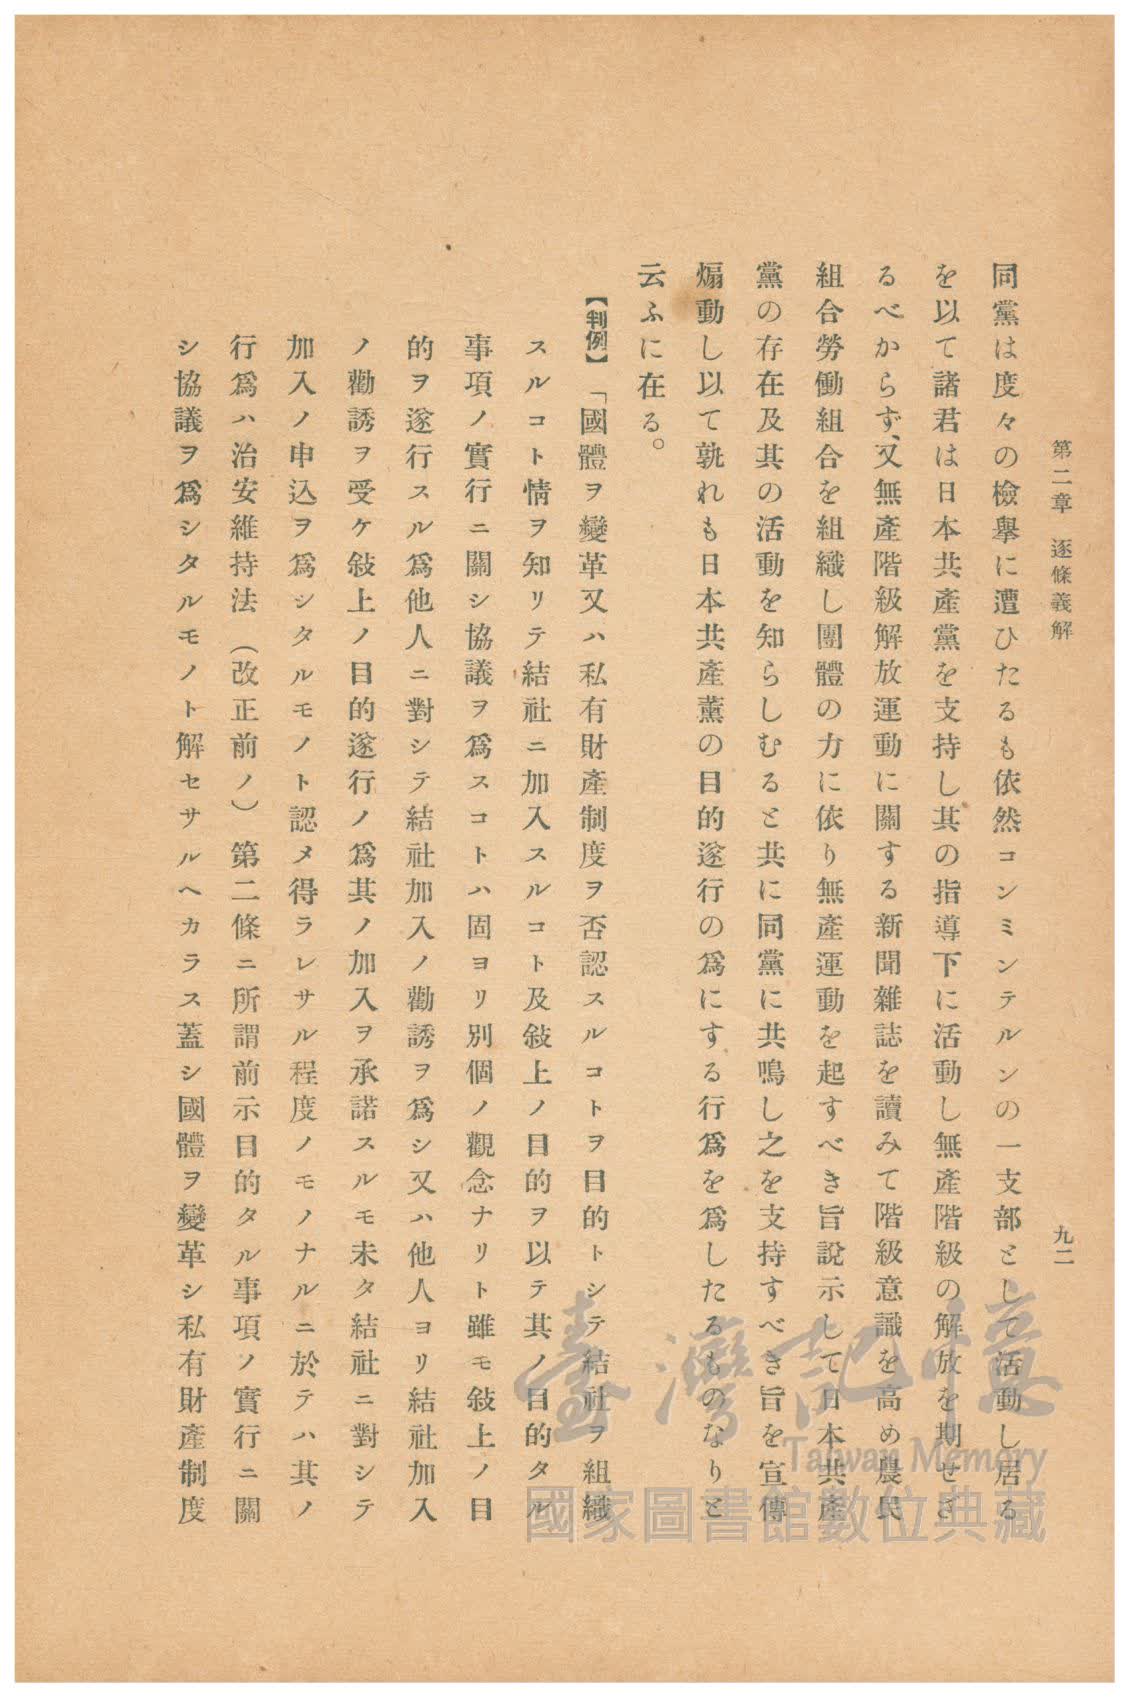 第二章　逐條義解
九二
同黨は度々の檢擧に遭ひたるも依然コンミンテルンの一支部として活動し居る
を以て諸君は日本共產黨を支持し其の指導下に活動し無產階級の解放を期せざ
るべからず、又無產階級解放運動に關する新聞雜誌を讀みて階級意識を高め農民
組合勞働組合を組織し團體の力に依り無產運動を起すべき旨說示して日本共產
黨の存在及其の活動を知らしむると共に同黨に共鳴し之を支持すべき旨を宣傳
煽動し以て孰れも日本共產薰の目的遂行の爲にする行爲を爲したるものなりと
云ふに在る。
【判例】「國體ヲ變革又ハ私有財產制度ヲ否認スルコトヲ目的トシテ結社ヲ組織
スルコト情ヲ知リテ結社ニ加入スルコト及敍上ノ目的ヲ以テ其ノ目的タル
事項ノ實行ニ關シ協議ヲ爲スコトハ固ヨリ別個ノ觀念ナリト雖モ敍上ノ目
的ヲ遂行スル爲他人ニ對シテ結社加入ノ勸誘ヲ爲シ又ハ他人ヨリ結社加入
ノ勸誘ヲ受ケ敍上ノ目的遂行ノ爲其ノ加入ヲ承諾スルモ未タ結社ニ對シテ
加入ノ申込ヲ爲シタルモノト認メ得ラレサル程度ノモノナルニ於テハ其ノ
行爲ハ治安維持法（改正前ノ）第二條ニ所謂前示目的タル事項ノ實行ニ關
シ協議ヲ爲シタルモノト解セサルヘカラス蓋シ國體ヲ變革シ私有財產制度
臺灣記憶
Taiwan Memory
國家圖書館數位典藏